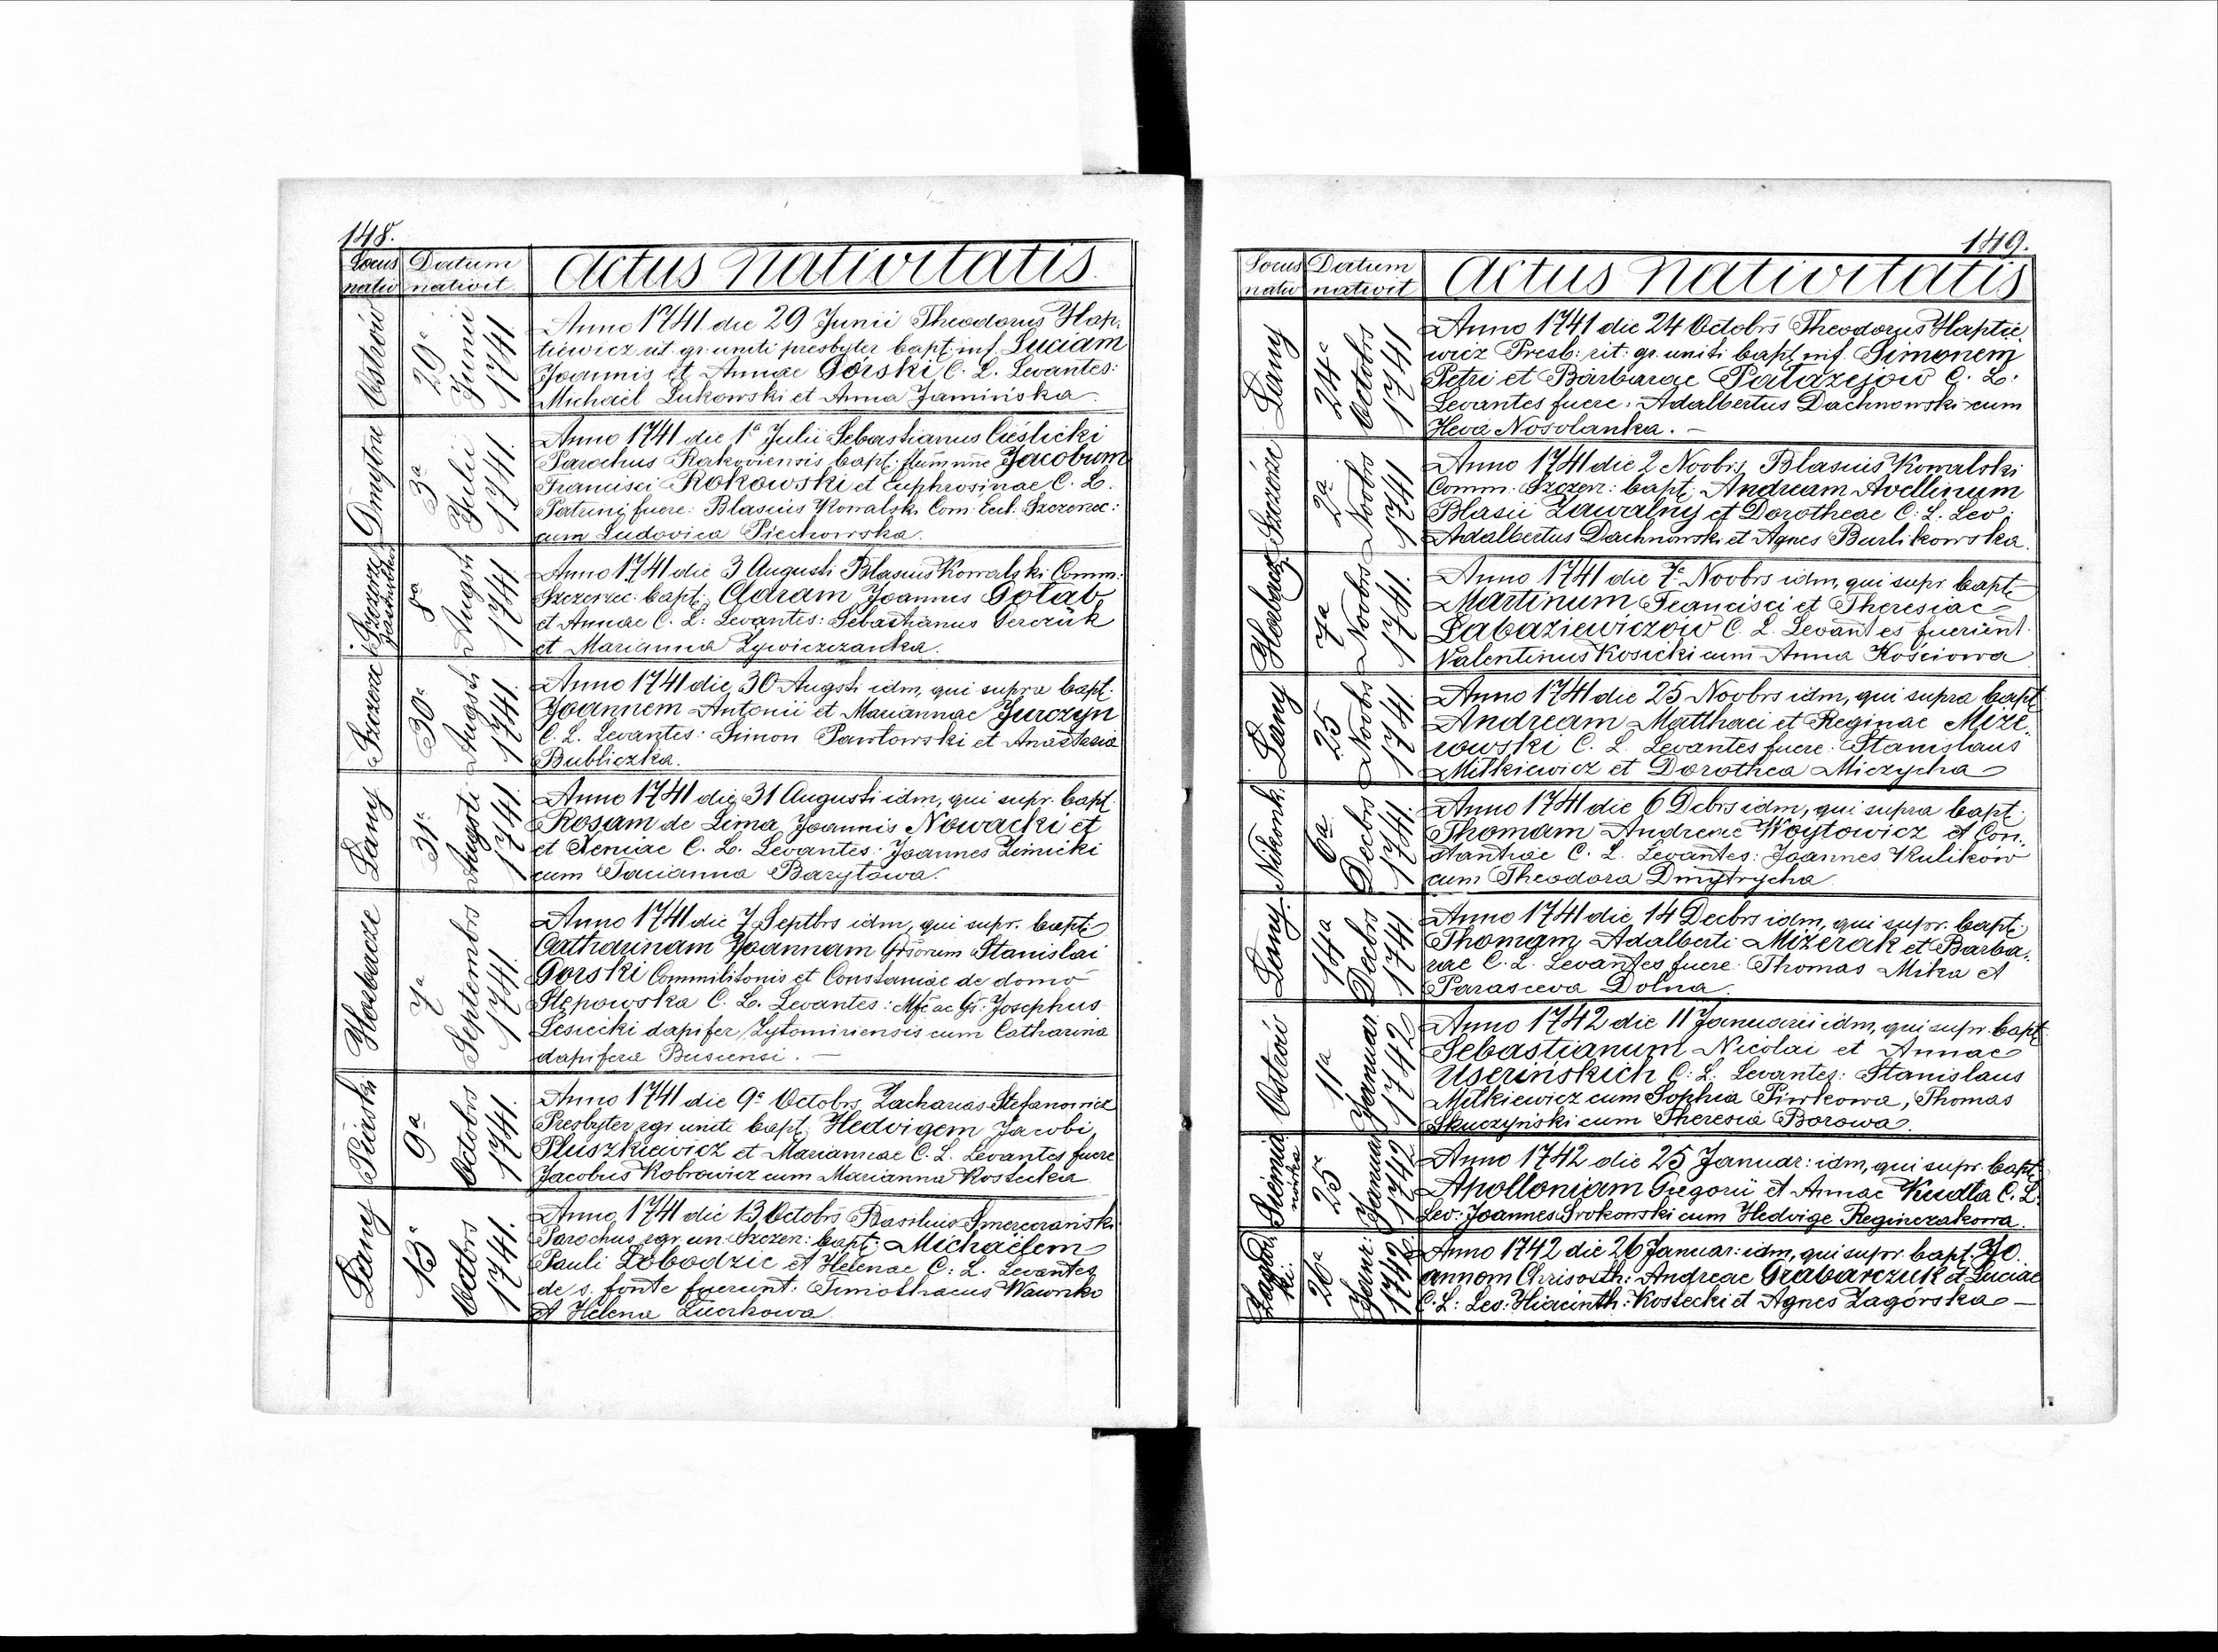 148.
Locus nativ
Datum nativit.
Actus Nativitatis.
Ostrów
29a Junii 1741
Anno 1741 die 29 Junii Theodorus Hap-
tiewicz rit. gr. uniti presbyter bapt. inf. Luciam
Joannis et Annae Gorski C. L. Levantes:
Michaël Lukowski et Anna Jamińska.
Dmytrie
3a Julii 1741.
Anno 1741 die 1a Julii Sebastianus Cieślicki
Parochus Rakoviensis bapt. Jacobum
Francisci Rokowski et Euphrosinae C. L.
Patrini fuere: Blasius Kowalski Com. Eccl. Szczerzec:
cum Ludovica Piechowska.
Szczerze
8a Augsti 1741.
Anno 1741 die 3 Augusti Blasius Kowalski Comm:
Szczerzec: bapt: Adram Joannis Gołąb
et Annae C. L: Levantes: Sebastianus Serczuk
et Marianna Zywiczczanka.
Szczerze
30a Augsti 1741.
Anno 1741 die 30 Augsti idm, qui supra bapt.
Joannem Antonii et Mariannae Jurczyn
C. L. Levantes: Simon Pawłowski et Anastasia
Bubliczka.
Łany
31a Augsti 1741.
Anno 1741 die 31 Augusti idm, qui supr. bapt.
Rosam de Lima Joannis Nowacki et
et Xeniae C. L. Levantes: Joannes Zimicki
cum Tacianna Barytowa.
Horbacze
7a Septembrs 1741.
Anno 1741 die 7 Septbrs idm, qui supr. bapt:
Catharinam Joannam Grsorum Stanislai
Gorski Commilitonis et Constaniae de domo
Stępowska C. L. Levantes: Mfc ac Gr: Josephus
Lesiecki dapifer Zytomiriensis cum Catharina
dapifera Buscensi. —
Piaski
9a Octobrs 1741.
Anno 1741 die 9a Octobrs Zacharias Stefanowicz
Presbyter rgr. uniti bapt. Hedvigem Jacobi
Pluszkiewicz et Mariannae C. L. Levantes fuere
Jacobus Kobrowicz cum Marianna Kostecka
Łany
13a Octbrs 1741.
Anno 1741 die 13 Octobrs Basilius
Parochus rgr. un. Szczer: bapt: Michaëlem
Pauli Łobodzic et Helenae C: L. Levantes
de s. fonte fuerunt: Timothaeus Wawrzko
et Helena Zuczkowa.
149.
Locus nativ
Datum nativit
Actus Nativitatis
Łany
24a Octobrs 1741
Anno 1741 die 24 Octobrs Theodorus Haptie-
wicz Presb: rit: gr. uniti bapt. inf. Simonem
Petri et Barbarae Patazejow C. L.
Levantes fuere: Adalbertus Dachnowski cum
Heva Nosolanka. —
Szczerze
2a Novbrs 1741
Anno 1741 die 2 Novbrs Blasius Kowalski
Comm: Szczer: bapt: Andream Avellinum
Blasii Zawalny et Dorotheae C: L. Lev:
Adalbertus Dachnowski et Agnes Burlikowska.
Horbacz
7a Novbrs 1741.
Anno 1741 die 7a Novbrs idm, qui supr bapt:
Martinum Francisci et Theresiae
Łabaziewiczów C. L. Levantes fuerient
Valentinus Kosicki cum Anna Kościowa
Łany
25 Novbrs 1741.
Anno 1741 die 25 Novbrs idm, qui supra bapt:
Andream Matthaei et Reginae Mize-
rowski C. L. Levantes fuere: Stanislaus
Milkiewicz et Dorothea Miczycha
Nikonk.
6a Decbrs 1741.
Anno 1741 die 6 Dcbrs idm, qui supra bapt:
Thomam Andreae Woytowicz et Con-
stantiae C. L. Levantes: Joannes Kulików
cum Theodora Dmytrycha
Łany.
14a Decbrs 1741
Anno 1741 die 14 Decbrs idm, qui supr. bapt:
Thomam Adalberti Mizerak et Barba-
rae C. L. Levantes fuere: Thomas Mika et
Parasceva Dolna.
Ostrów
11a Januar: 1742
Anno 1742 die 11 Januarii idm, qui supr. bapt:
Sebastianum Nicolai et Annae
Userinskich C: L. Levantes: Stanislaus
Milkiewicz cum Sophia Piwkowa, Thomas
Skuczyński cum Theresia Borowa.
Siemia
25a Januar 1742
Anno 1742 die 25 Januar: idm, qui supr. bapt:
Apolloniam Gregorii et Annae Kudła C. L.
Lev: Joannes Srokowski cum Hedvige Reginczakowa.
Zagod ki.
26a Januar: 1742
Anno 1742 die 26 Januar: idm, qui supr. bapt: Jo
annom Chrisosth: Andreae Grabarczuk et Luciae
C. L: Lev: Hiacinth: Kostecki et Agnes Zagórska —